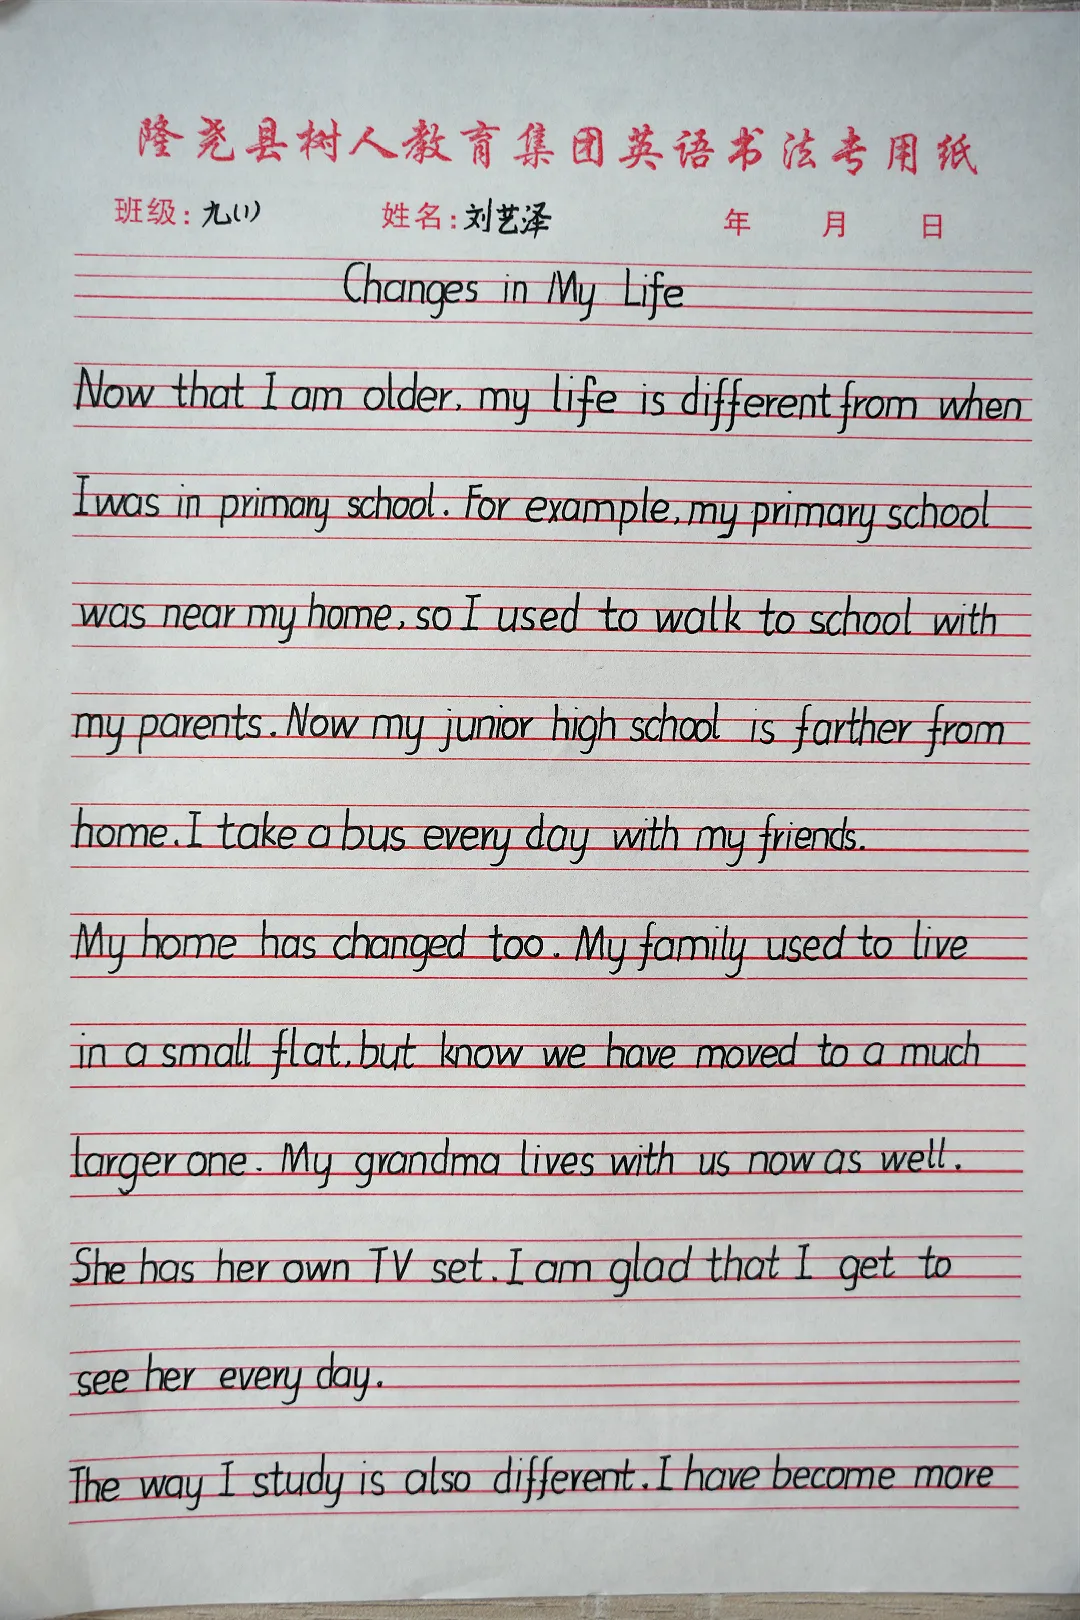 隆尧县树人教育集团英语书法专用纸
班级:九(1) 姓名:刘艺泽 年 月 日
Changes in My Life
Now that I am older, my life is different from when
I was in primary school. For example, my primary school
was near my home, so I used to walk to school with
my parents. Now my junior high school is farther from
home. I take a bus every day with my friends.
My home has changed too. My family used to live
in a small flat, but know we have moved to a much
larger one. My grandma lives with us now as well.
She has her own TV set. I am glad that I get to
see her every day.
The way I study is also different. I have become more